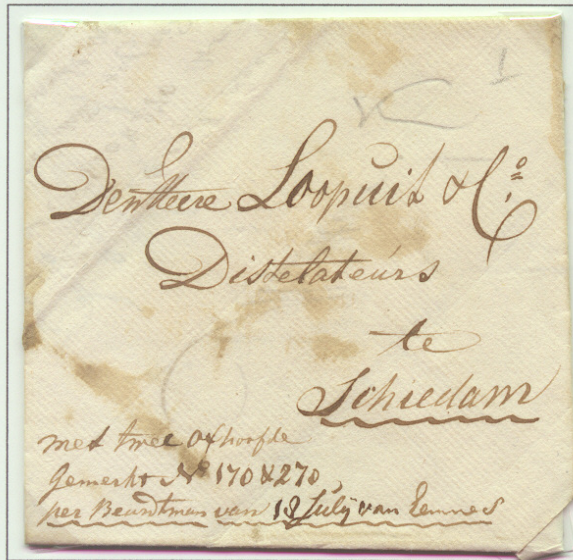 Den Heere Loopuit & Co.
Distelateurs
te
Schiedam
met twee Oxhoofde
gemerkt No 170 & 270
per Beurdtman van 18 July van Eemnes